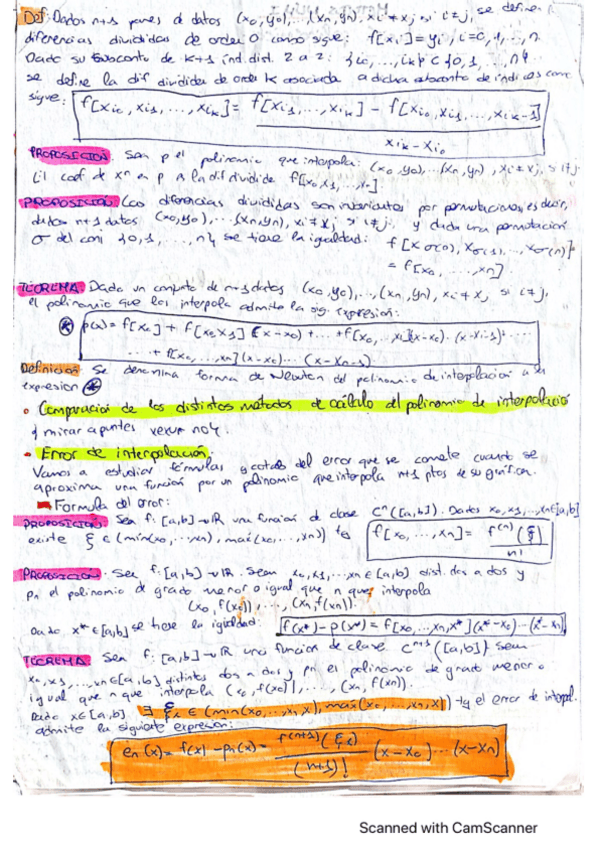 Def: Dados n+1 pares d datos (x₀,y₀),...,(xₙ,yₙ), xᵢ≠xⱼ si i≠j, se define
diferencias divididas de orden 0 como sigue: f[xᵢ]=yᵢ, i=0,1,..,n.
Dado su subconto de k+1 ind. dist. 2 a 2: {i₀,...,iₖ} ⊂ {0,1,...,n}
se define la dif dividida de orden k asociada a dicho subconto de indices como
sigue: f[xᵢ₀, xᵢ₁,..., xᵢₖ] = (f[xᵢ₁,...,xᵢₖ] - f[xᵢ₀,xᵢ₁,...,xᵢₖ₋₁]) / (xᵢₖ - xᵢ₀)
PROPOSICION. Sea p el polinomio que interpola: (x₀,y₀),...,(xₙ,yₙ), xᵢ≠xⱼ, si i≠j
El coef. de xⁿ en p es la dif divide f[x₀,x₁,...,xₙ]
PROPOSICIÓN Las diferencias divididas son invariantes por permutaciones, es decir,
datos n+1 datos (x₀,y₀),...,(xₙ,yₙ), xᵢ≠xⱼ si i≠j, y dada una permutación
σ del conj {0,1,...,n} se tiene la igualdad: f[x_σ(0), x_σ(1),..., x_σ(n)]
= f[x₀,...,xₙ]
TEOREMA: Dado un conjunto de n+1 datos (x₀,y₀),...,(xₙ,yₙ), xᵢ≠xⱼ si i≠j.
el polinomio que los interpola admite la sig. expresion:
* p(x) = f[x₀] + f[x₀,x₁](x-x₀) + ... + f[x₀,...,xᵢ](x-x₀)...(x-xᵢ₋₁)+...
...+ f[x₀,...,xₙ](x-x₀)...(x-xₙ₋₁)
Definición Se denomina forma de Newton del polinomio de interpolacion a su
expresion *
• Comparación de los distintos métodos de cálculo del polinomio de interpolación
mirar apuntes
• Error de interpolación,
Vamos a estudiar fórmulas y cotas del error que se comete cuando se
aproxima una función por un polinomio que interpola n+1 ptos de su gráfica.
Formula del error:
PROPOSICION. Sea f: [a,b]→ℝ una función de clase Cⁿ([a,b]). Dados x₀,x₁,...,xₙ∈[a,b]
existe ξ ∈ (min(x₀,...,xₙ), max(x₀,...,xₙ)) tq f[x₀,...,xₙ] = f⁽ⁿ⁾(ξ) / n!
PROPOSICIÓN. Sea f: [a,b]→ℝ. Sean x₀,x₁,...,xₙ∈[a,b] dist. dos a dos y
pₙ el polinomio de grado menor o igual que n que interpola
(x₀,f(x₀)),...,(xₙ,f(xₙ)).
Dado x*∈[a,b] se tiene la igualdad: f(x*)-p(x*) = f[x₀,...,xₙ,x*](x*-x₀)...(x*-xₙ)
TEOREMA: Sea f: [a,b]→ℝ una funcion de clase Cⁿ⁺¹([a,b]) Sean
x₀,x₁,...,xₙ∈[a,b] distintos dos a dos y pₙ el polinomio de grado menor o
igual que n que interpola (x₀,f(x₀)),...,(xₙ,f(xₙ)).
Dado x∈[a,b] ∃ ξₓ ∈ (min(x₀,...,xₙ,x), max(x₀,...,xₙ,x)) tq el error de interpol.
admite la siguiente expresion:
eₙ(x) = f(x) - pₙ(x) = f⁽ⁿ⁺¹⁾(ξₓ) / (n+1)! (x-x₀)...(x-xₙ)
Scanned with CamScanner